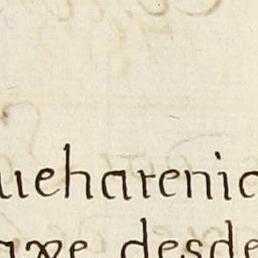 ueharenic
axe desde